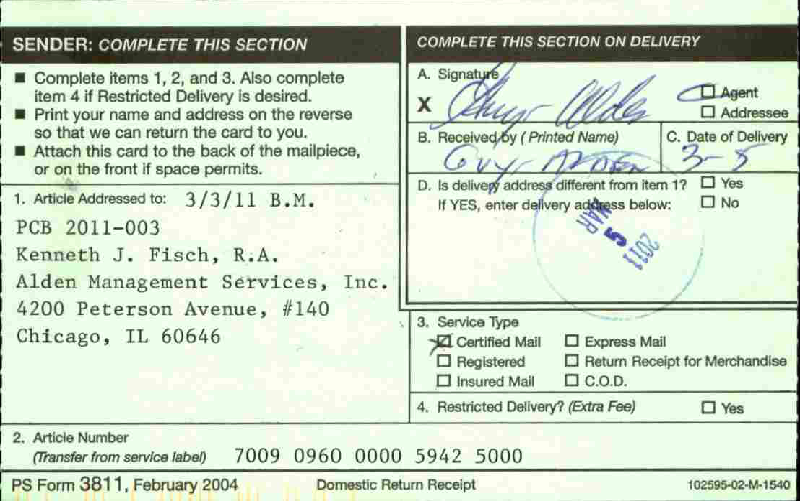 SENDER: COMPLETE THIS SECTION
■ Complete items 1, 2, and 3. Also complete
item 4 if Restricted Delivery is desired.
■ Print your name and address on the reverse
so that we can return the card to you.
■ Attach this card to the back of the mailpiece,
or on the front if space permits.
1. Article Addressed to: 3/3/11 B.M.
PCB 2011-003
Kenneth J. Fisch, R.A.
Alden Management Services, Inc.
4200 Peterson Avenue, #140
Chicago, IL 60646
2. Article Number
(Transfer from service label) 7009 0960 0000 5942 5000
COMPLETE THIS SECTION ON DELIVERY
A. Signature
X
☐ Agent
☐ Addressee
B. Received by (Printed Name)
C. Date of Delivery
3-5
D. Is delivery address different from item 1? ☐ Yes
If YES, enter delivery address below: ☐ No
MAR 5 2011
3. Service Type
☒ Certified Mail ☐ Express Mail
☐ Registered ☐ Return Receipt for Merchandise
☐ Insured Mail ☐ C.O.D.
4. Restricted Delivery? (Extra Fee) ☐ Yes
PS Form 3811, February 2004 Domestic Return Receipt 102595-02-M-1540